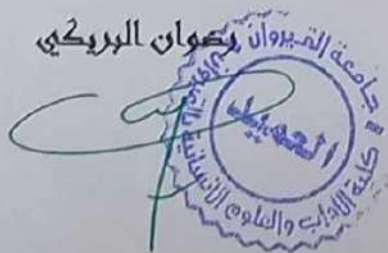 رضوان البريكي
جامعة القيروان
العميد
كلية الآداب والعلوم الإنسانية بالقيروان